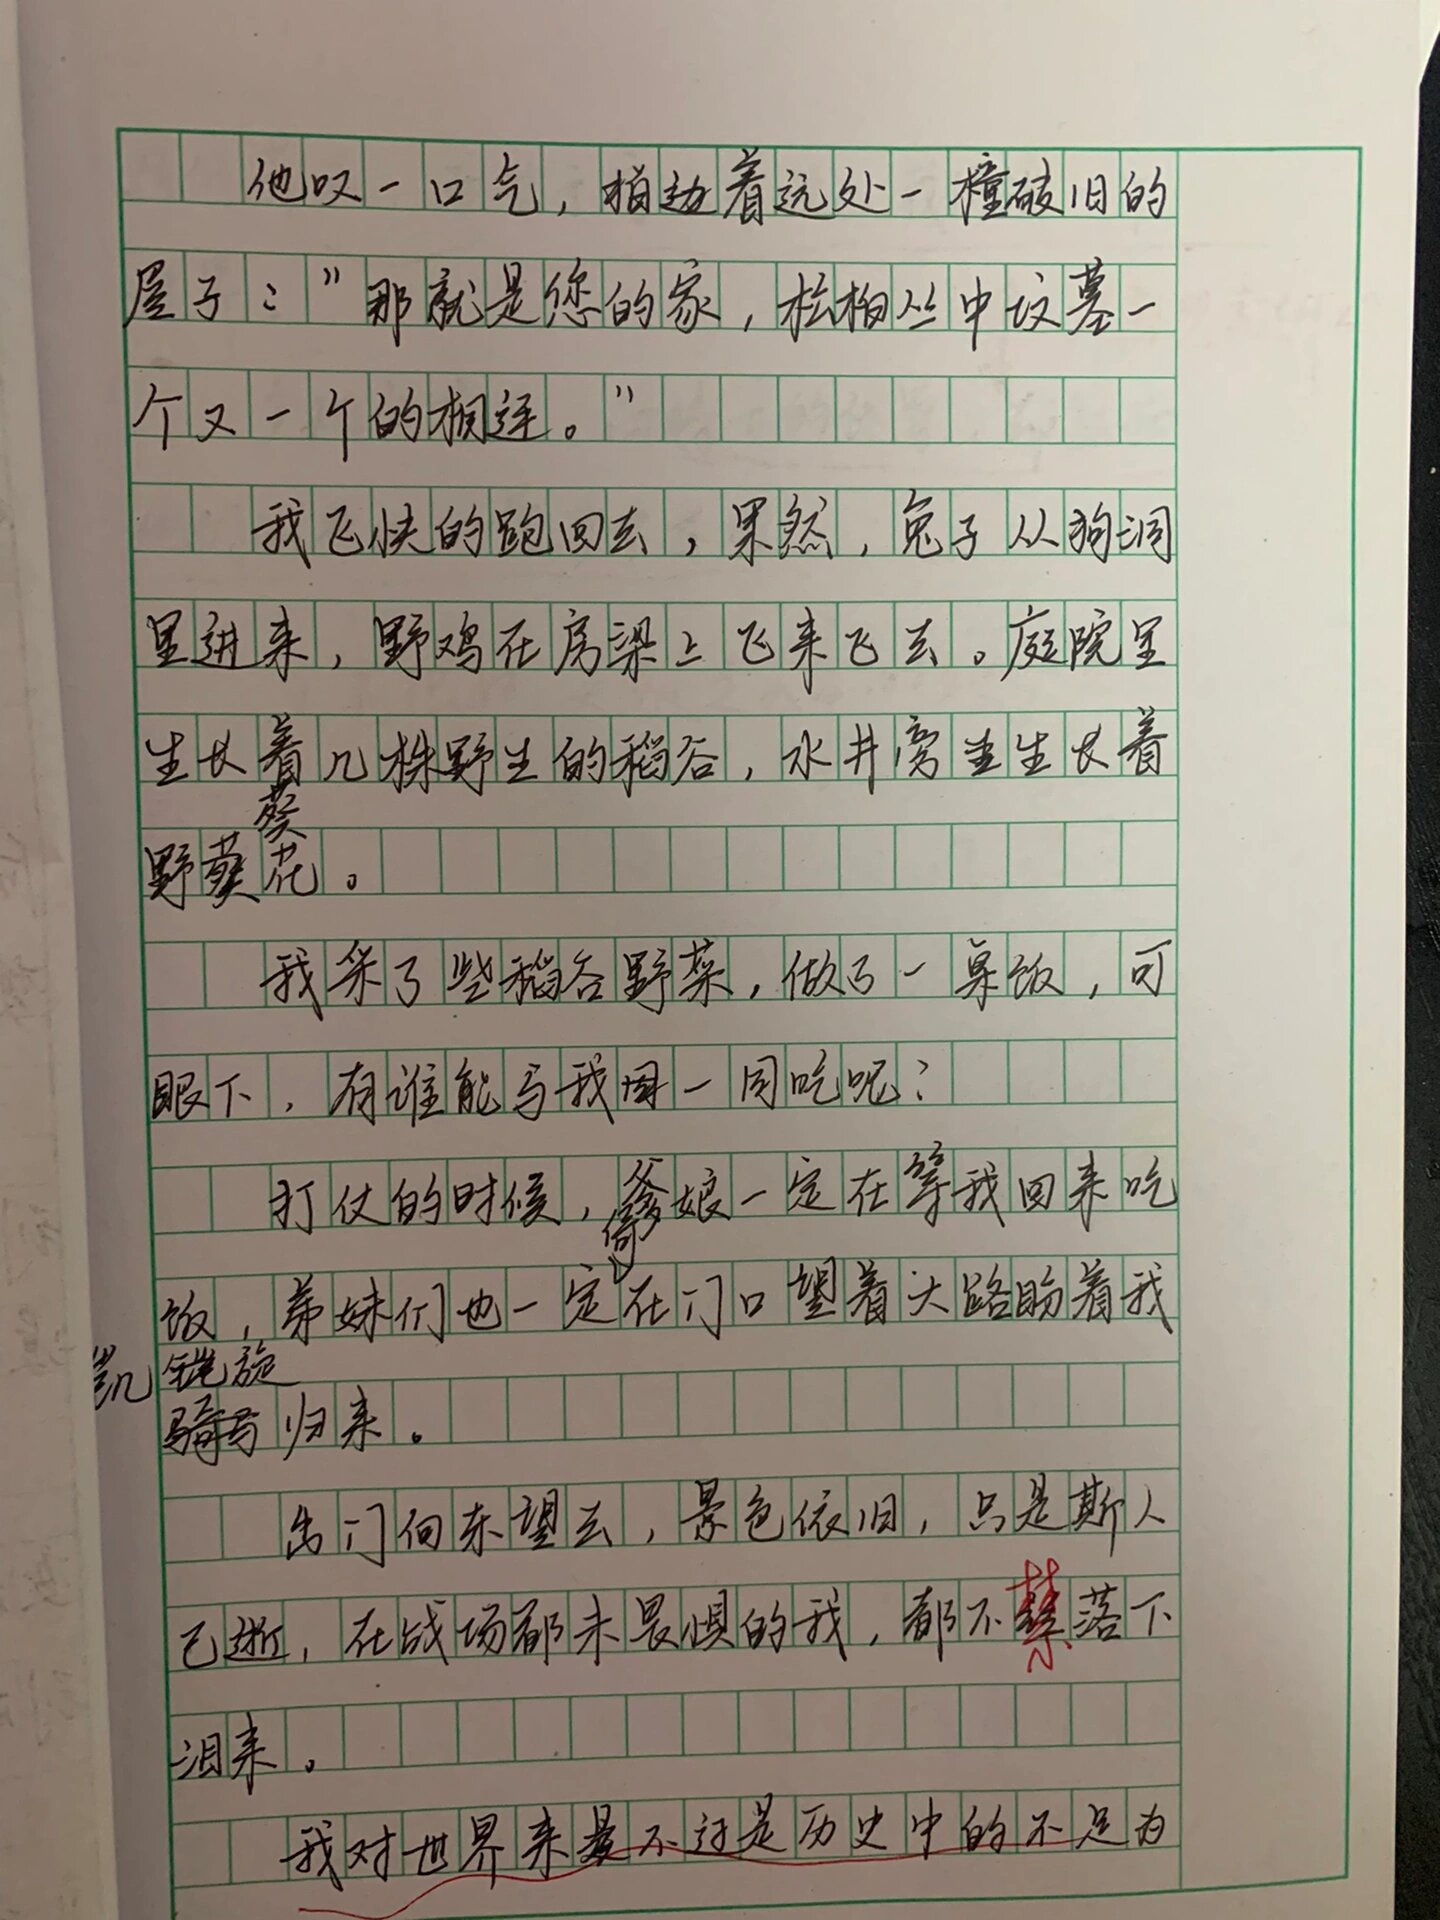 他叹一口气，指边着远处一橦破旧的
屋子：”那就是您的家，松柏丛中坟墓一
个又一个的相连。”
我飞快的跑回去，果然，兔子从狗洞
里进来，野鸡在房梁上飞来飞去。庭院里
生长着几株野生的稻谷，水井旁生长着
葵
野葵花。
我采了些稻谷野菜，做了一桌饭，可
眼下，有谁能与我一同吃呢？
打仗的时候，爹娘一定在等我回来吃
倚
饭，弟妹们也一定在门口望着大路盼着我
凯 旋
骑马归来。
出门向东望去，景色依旧，只是斯人
已逝，在战场都未畏惧的我，都不禁落下
泪来。
我对世界来不过是历史中的不足为